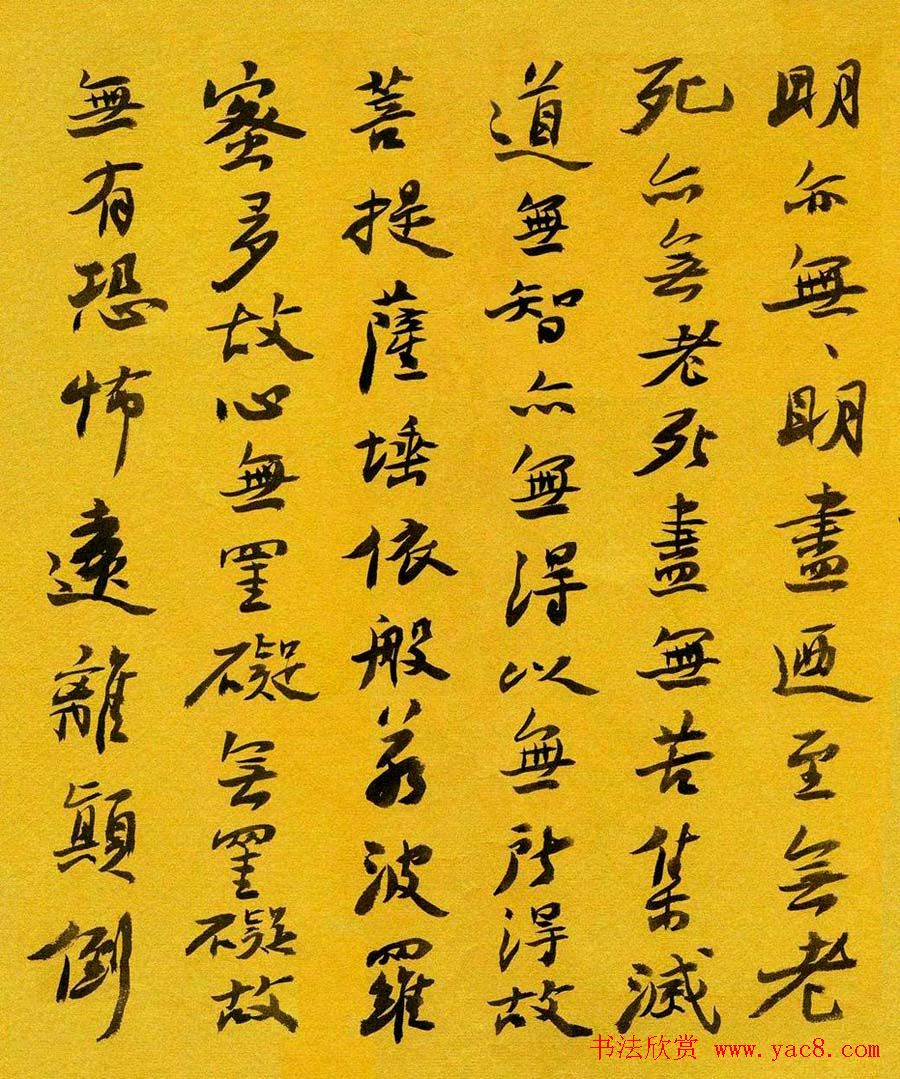 明亦無、明盡迺至無老
死亦無老死盡無苦集滅
道無智亦無得以無所得故
菩提薩埵依般若波羅
蜜多故心無罣礙無罣礙故
無有恐怖遠離顛倒
书法欣赏 www.yac8.com